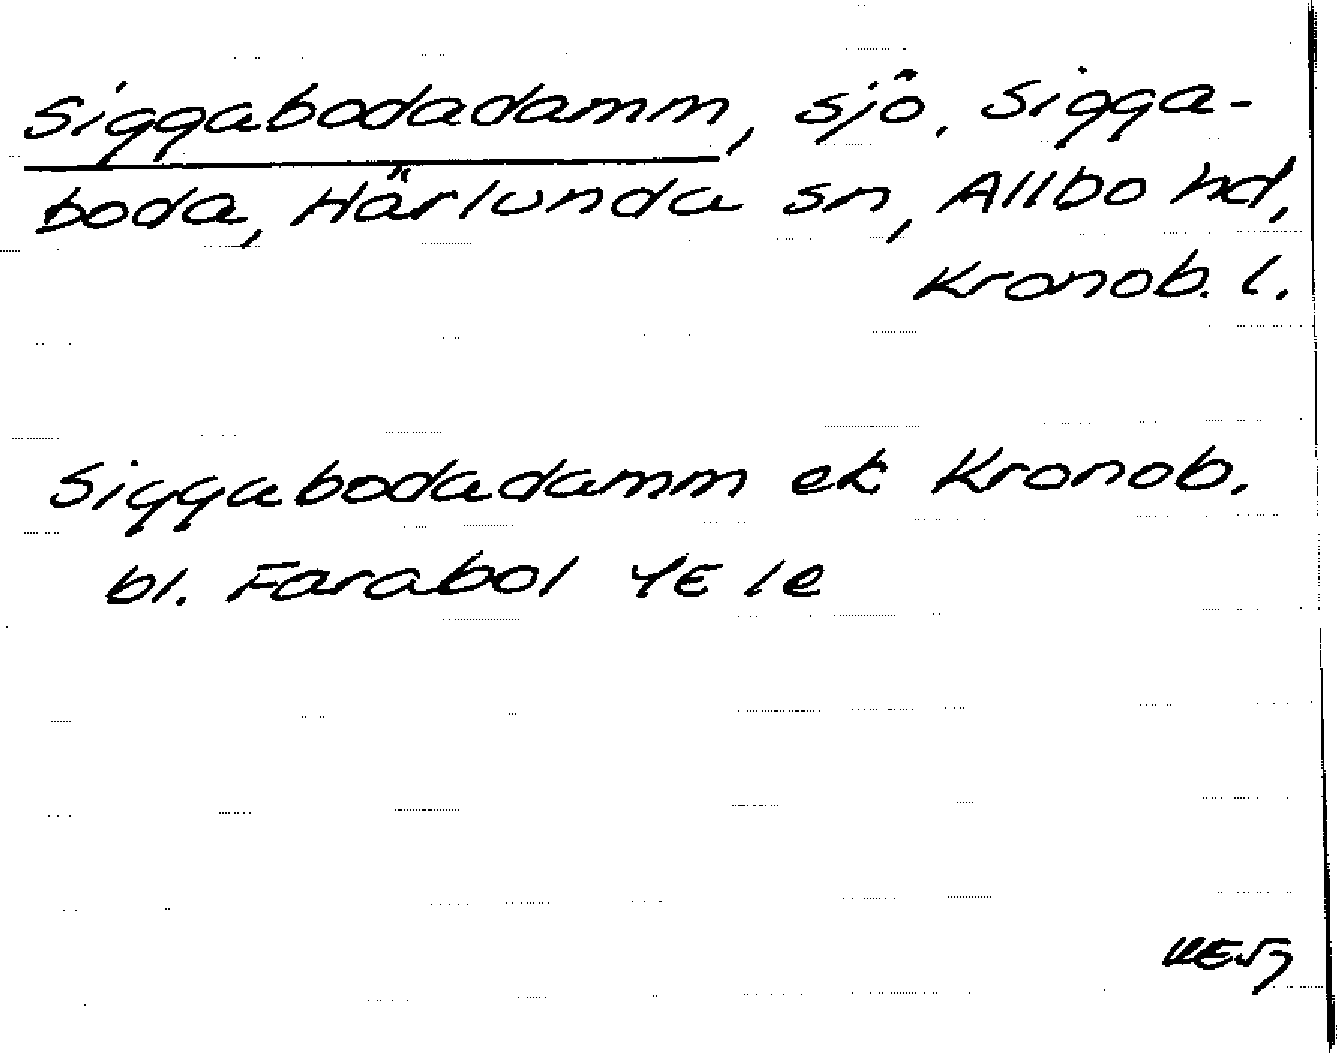 Siggabodadamm, sjö, Sigga-
boda, Härlunda sn, Allbo hd,
Kronob. l.
Siggabodadamm ek Kronob.
bl. Farabol 4E 1e